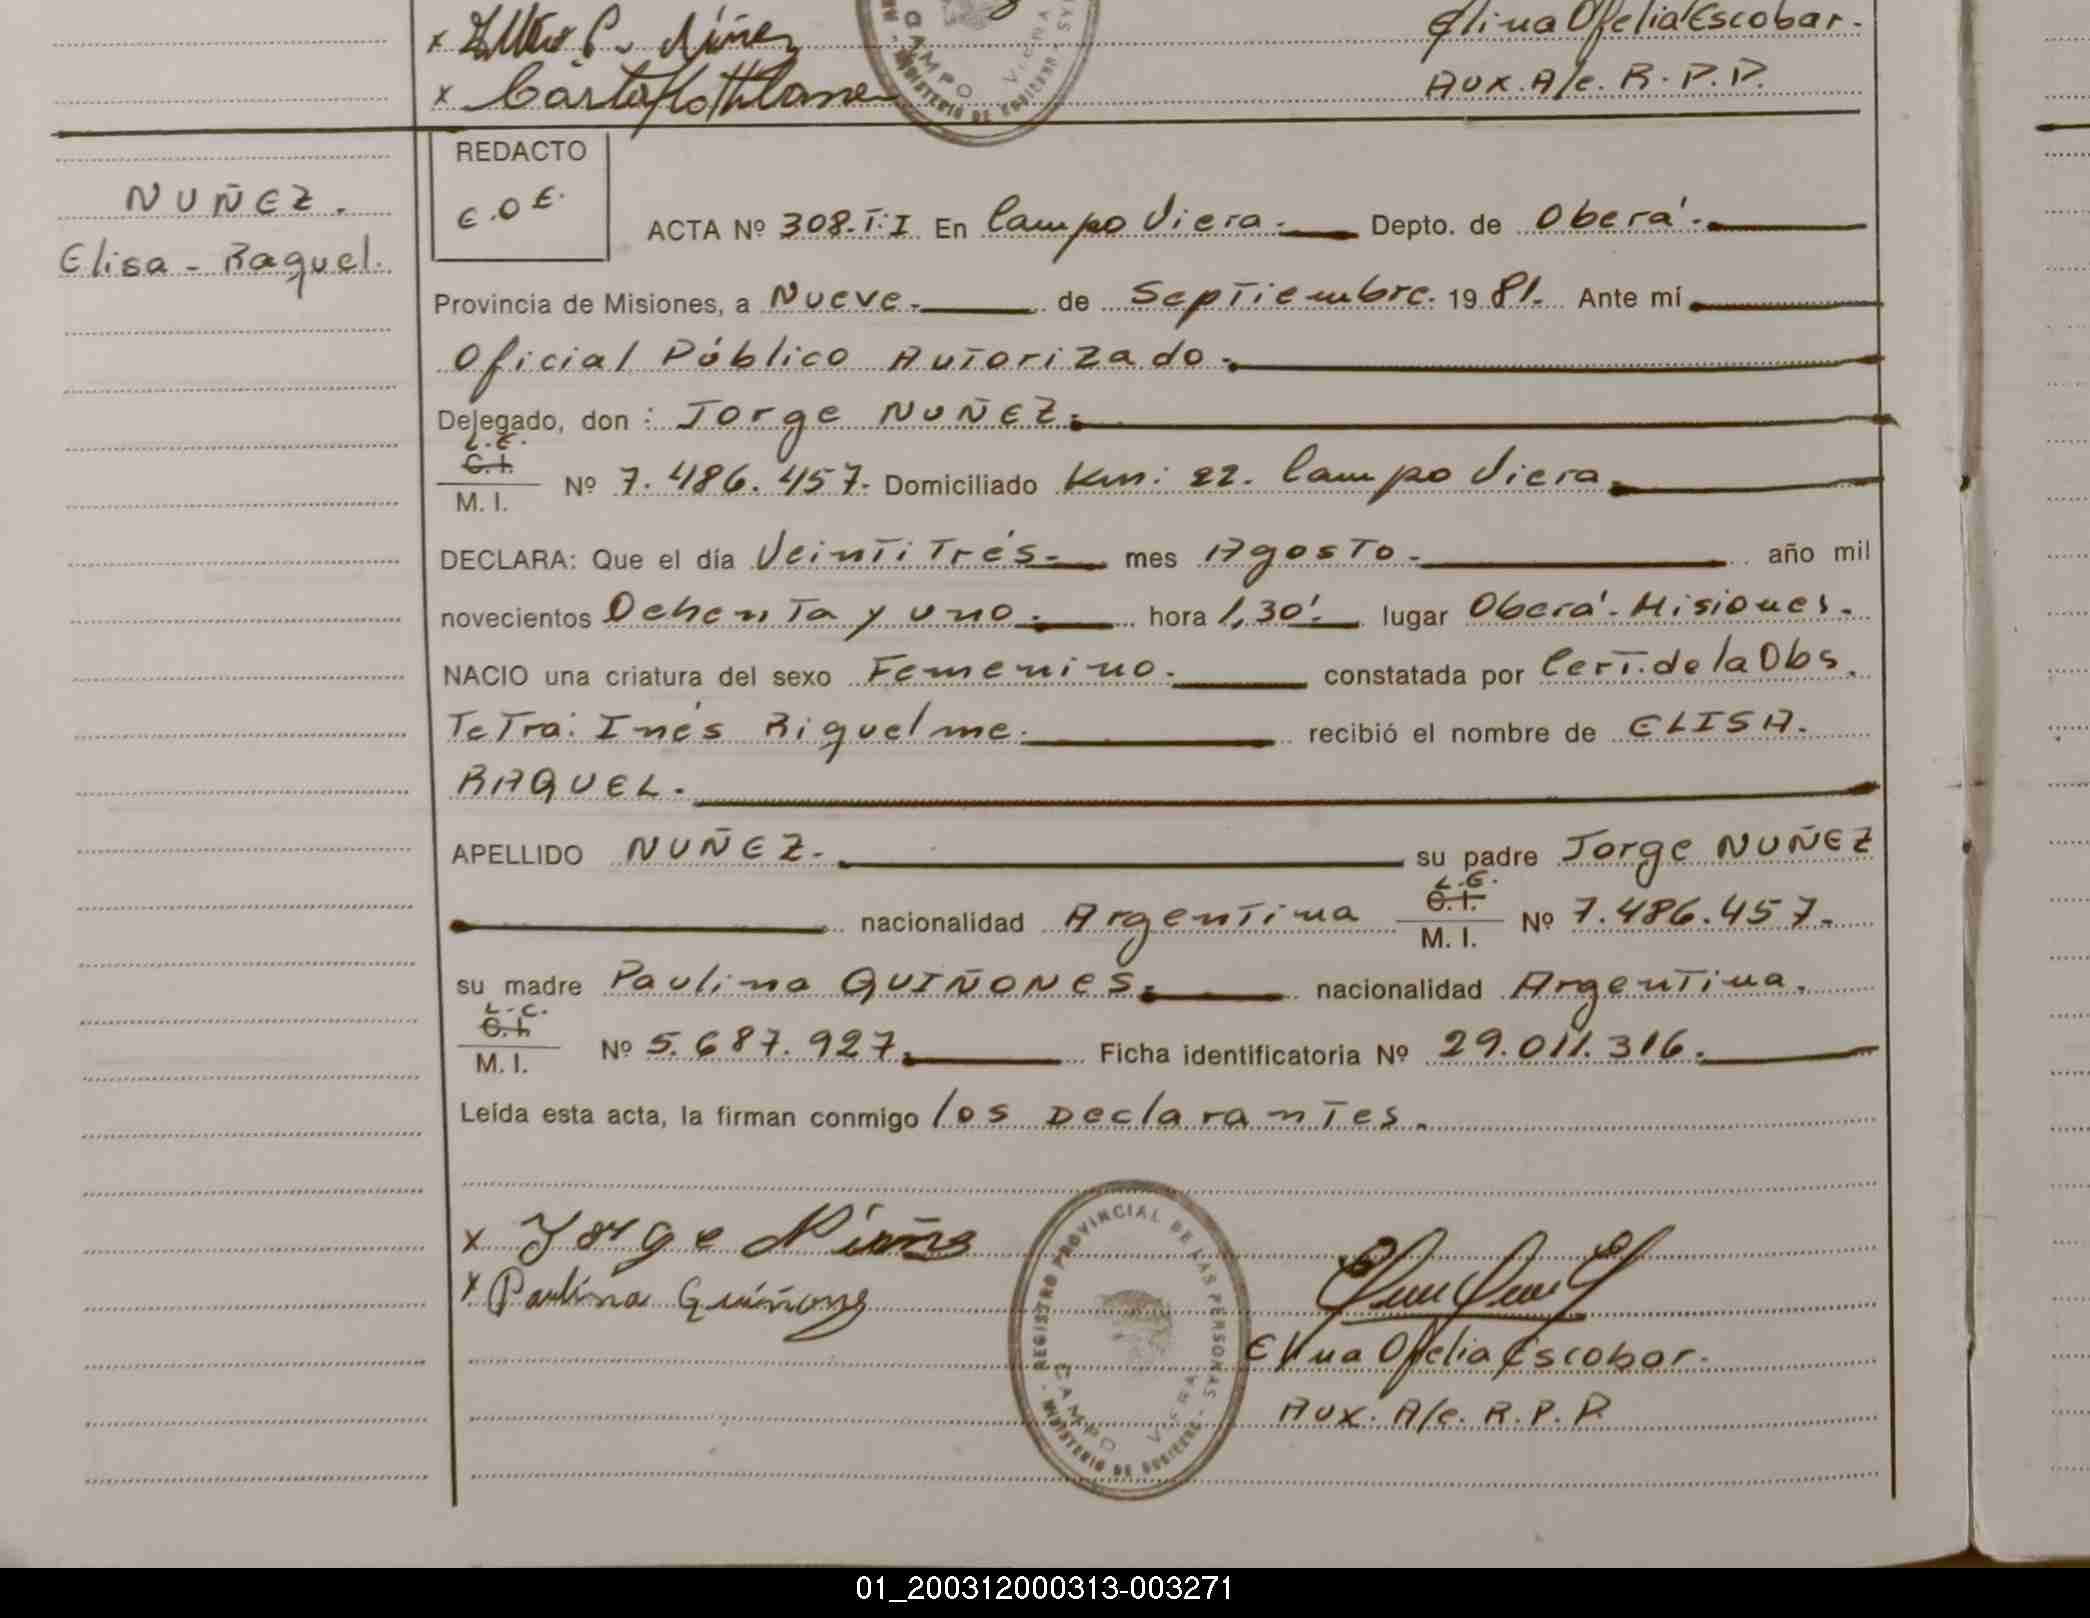 x Núñez
x
Elina Ofelia Escobar.
Aux. A/c. R.P.P.
CAMPO VIERA
MINISTERIO DE GOBIERNO
NUÑEZ.
Elisa - Raquel.
REDACTO
E.O.E.
ACTA Nº 308.T:I En Campo Viera. Depto. de Oberá.
Provincia de Misiones, a Nueve. de Septiembre. 1981. Ante mí
Oficial Público Autorizado.
Delegado, don: Jorge NUÑEZ.
L.E.
C.I.
M. I. Nº 7.486.457. Domiciliado Km: 22. Campo Viera
DECLARA: Que el día Veintitrés. mes Agosto. año mil
novecientos Ochenta y uno. hora 1,30'. lugar Oberá. Misiones.
NACIO una criatura del sexo Femenino. constatada por Cert. de la Obs.
Tetra: Inés Riquelme. recibió el nombre de ELISA.
RAQUEL.
APELLIDO NUÑEZ. su padre Jorge NUÑEZ
nacionalidad Argentina L.E. C.I. M. I. Nº 7.486.457.
su madre Paulina QUIÑONES. nacionalidad Argentina.
L.C.
C.I.
M. I. Nº 5.687.927. Ficha identificatoria Nº 29.011.316.
Leída esta acta, la firman conmigo los Declarantes.
x Jorge Núñez
x Paulina Quiñones
REGISTRO PROVINCIAL DE LAS PERSONAS
CAMPO VIERA
MINISTERIO DE GOBIERNO
Elina Ofelia Escobar.
Aux. A/c. R.P.P.
01_200312000313-003271